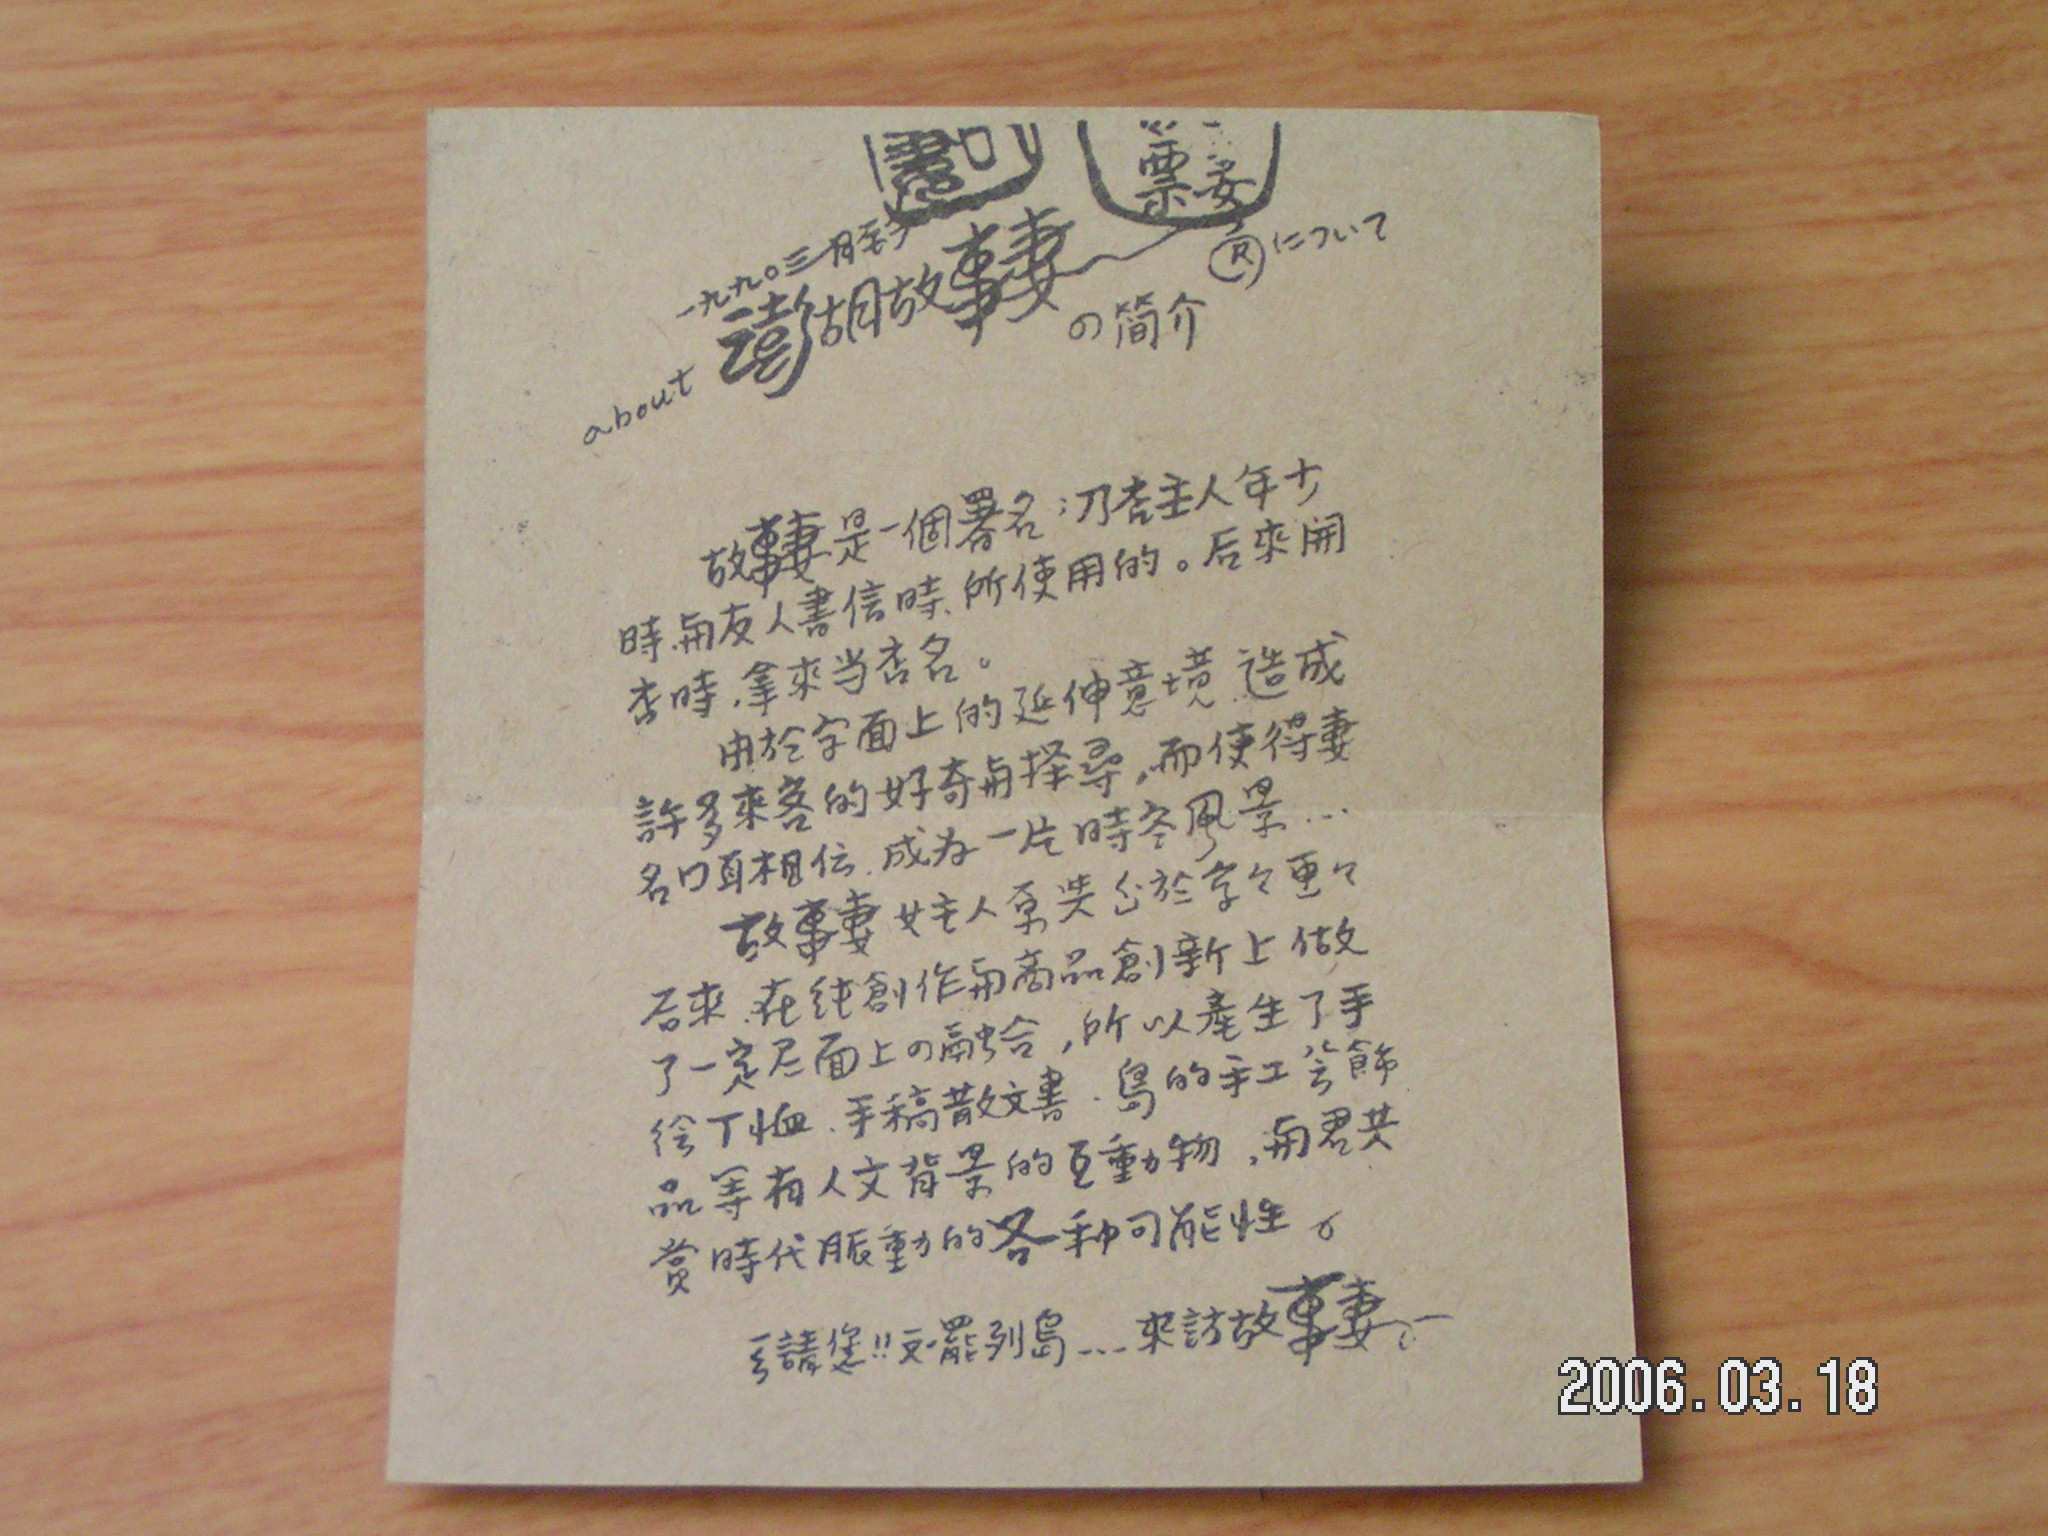 一九九〇三月至今
about 澎湖故事妻の簡介
Ⓡについて
故事妻是一個署名;乃杏主人年少
時、與友人書信時、所使用的。后來開
杏時,拿來当杏名。
由於字面上的延伸意境、造成
許多來客的好奇與探尋,而使得妻
名口耳相传、成為一片時空風景…
故事妻女主人原

后來、在純創作與商品創新上做
了一定层面上の融合,所以產生了手
绘T恤、手稿散文書、島的手工芸飾
品等有人文背景的互動物,與君共
賞時代脈動的各种可能性。
請您!!列島…來訪故事妻
2006.03.18